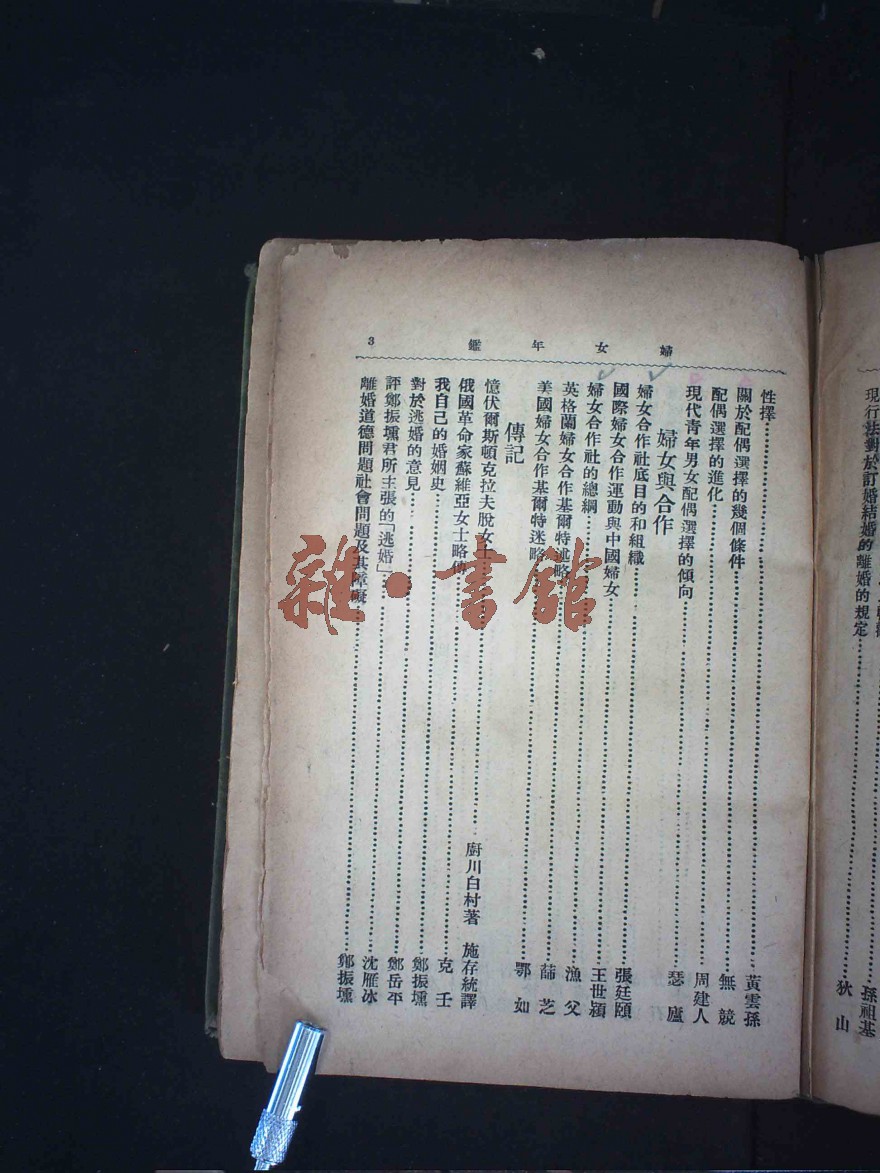 孫祖基
現行法對於訂婚結婚的離婚的規定……狄山
婦女年鑑 3
性擇……黃雲孫
關於配偶選擇的幾個條件……無競
配偶選擇的進化……周建人
現代青年男女配偶選擇的傾向……瑟廬
婦女與合作
婦女合作社底目的和組織……張廷頤
國際婦女合作運動與中國婦女……王世潁
婦女合作社的總綱……漁父
英格蘭婦女合作基爾特述略……薛芝
美國婦女合作基爾特迷略……鄂如
傳記
憶伏爾斯頓克拉夫脫女士……廚川白村著 施存統譯
俄國革命家蘇維亞女士略傳……克壬
我自己的婚姻史……鄭振壎
對於逃婚的意見……鄭岳平
評鄭振壎君所主張的「逃婚」……沈雁冰
離婚道德問題社會問題及其障礙……鄭振壎
雜·書館